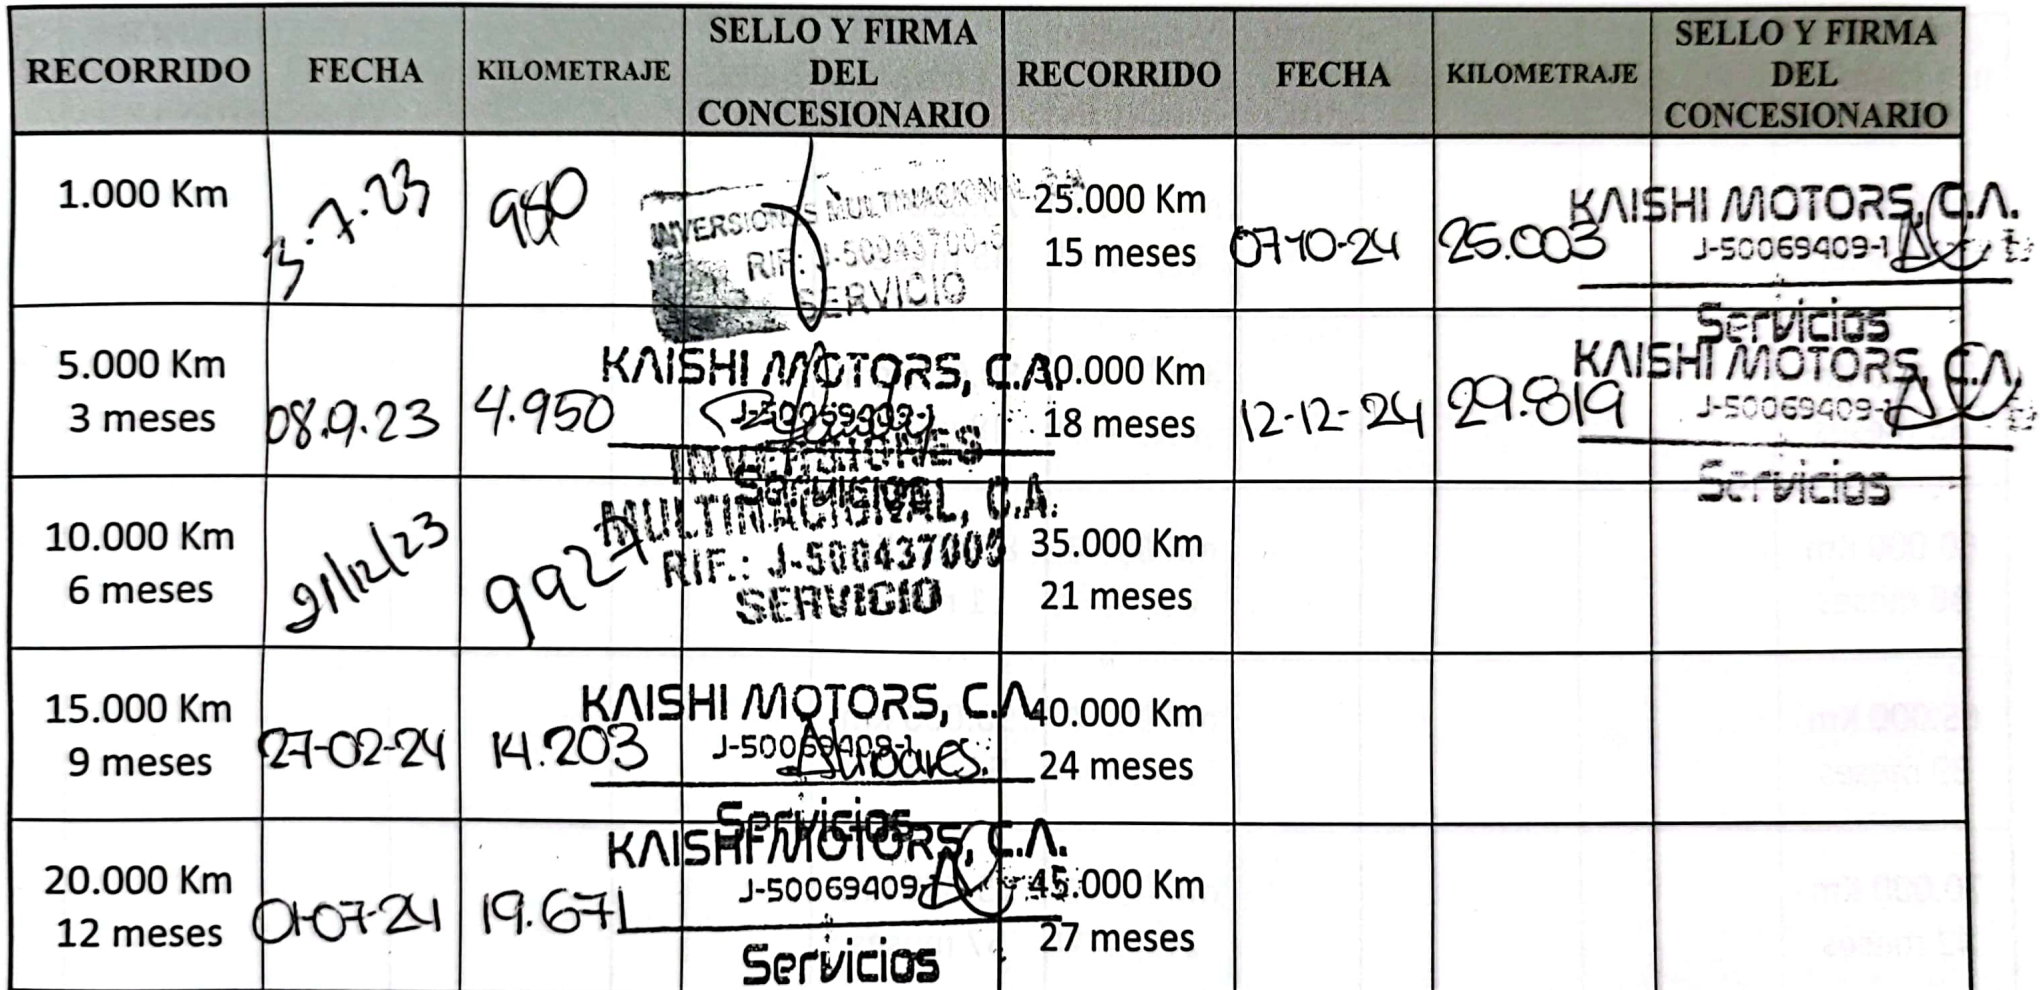 RECORRIDO FECHA KILOMETRAJE SELLO Y FIRMA DEL CONCESIONARIO RECORRIDO FECHA KILOMETRAJE SELLO Y FIRMA DEL CONCESIONARIO
1.000 Km
3.7.23
980
INVERSIONES MULTINACIONAL, C.A.
RIF: J-50043700-
SERVICIO
25.000 Km
15 meses
07-10-24
25.003
KAISHI MOTORS, C.A.
J-50069409-1
Servicios
5.000 Km
3 meses
08.9.23
4.950
KAISHI MOTORS, C.A.
J-50069409-1
Servicios
30.000 Km
18 meses
12-12-24
29.819
KAISHI MOTORS, C.A.
J-50069409-1
Servicios
10.000 Km
6 meses
21/12/23
9927
INVERSIONES
MULTINACIONAL, C.A.
RIF.: J-500437005
SERVICIO
35.000 Km
21 meses
15.000 Km
9 meses
27-02-24
14.203
KAISHI MOTORS, C.A.
J-50069409-1
Servicios
40.000 Km
24 meses
20.000 Km
12 meses
01-07-24
19.671
KAISHI MOTORS, C.A.
J-50069409-
Servicios
45.000 Km
27 meses